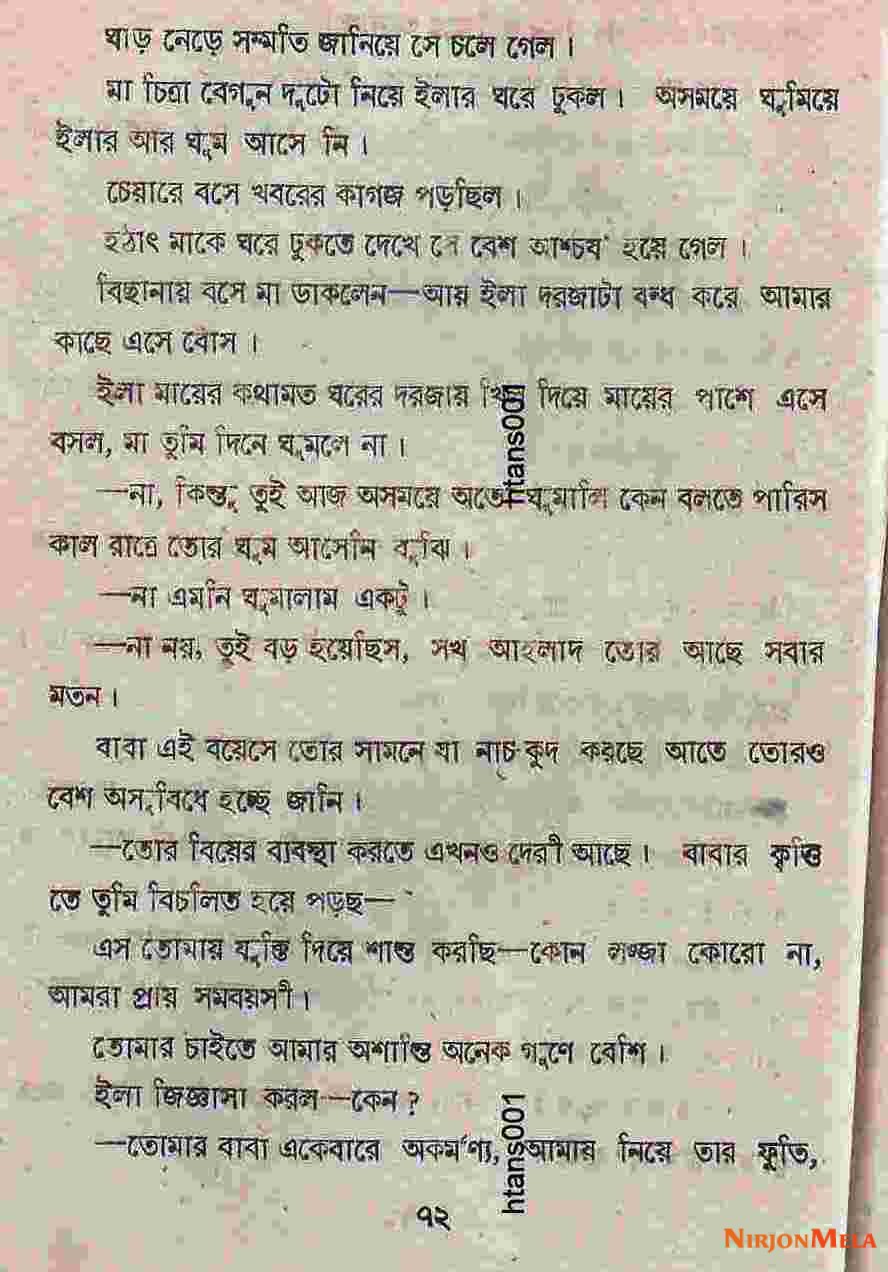 ঘাড় নেড়ে সম্মতি জানিয়ে সে চলে গেল।
মা চিত্রা বেগুন দুটো নিয়ে ইলার ঘরে ঢুকল। অসময়ে ঘুমিয়ে
ইলার আর ঘুম আসে নি।
চেয়ারে বসে খবরের কাগজ পড়ছিল।
হঠাৎ মাকে ঘরে ঢুকতে দেখে সে বেশ আশ্চর্য হয়ে গেল।
বিছানায় বসে মা ডাকলেন—আয় ইলা দরজাটা বন্ধ করে আমার
কাছে এসে বোস।
ইলা মায়ের কথামত ঘরের দরজায় খিল দিয়ে মায়ের পাশে এসে
বসল, মা তুমি দিনে ঘুমলে না।
—না, কিন্তু তুই আজ অসময়ে অতো ঘুমালি কেন বলতে পারিস
কাল রাত্রে তোর ঘুম আসেনি বুঝি।
—না এমনি ঘুমালাম একটু।
—না নয়, তুই বড় হয়েছিস, সখ আহলাদ তোর আছে সবার
মতন।
বাবা এই বয়েসে তোর সামনে যা নাচ-কুদ করছে আতে তোরও
বেশ অসুবিধে হচ্ছে জানি।
—তোর বিয়ের ব্যবস্থা করতে এখনও দেরী আছে। বাবার কৃত্তি
তে তুমি বিচলিত হয়ে পড়ছ—
এস তোমায় যুক্তি দিয়ে শান্ত করছি—কোন লজ্জা কোরো না,
আমরা প্রায় সমবয়সী।
তোমার চাইতে আমার অশান্তি অনেক গুণে বেশি।
ইলা জিজ্ঞাসা করল—কেন?
—তোমার বাবা একেবারে অকর্মণ্য, আমায় নিয়ে তার ফুর্তি,
৭২
htans001
htans001
NIRJONMELA